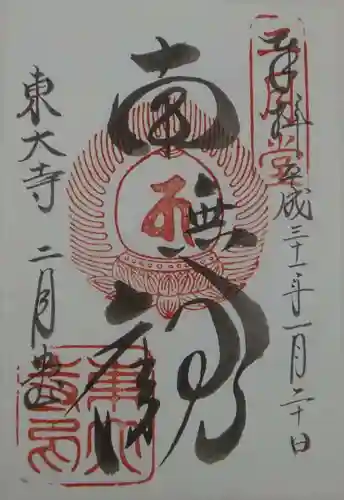 二月堂
奉拝 平成三十一年一月二十日
南無観
東大寺 二月堂